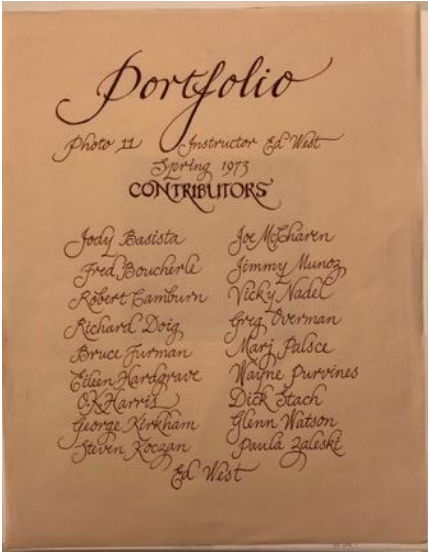 Portfolio
Photo 11 Instructor Ed West
Spring 1973
CONTRIBUTORS
Jody Basista
Fred Boucherle
Robert Camburn
Richard Doig
Bruce Furman
Eileen Hardgrave
O.K. Harris
George Kirkham
Steven Koczan
Joe McCharen
Jimmy Munoz
Vicky Nadel
Greg Overman
Marj Palsce
Wayne Purvines
Dick Stach
Glenn Watson
Paula Zaleski
Ed West